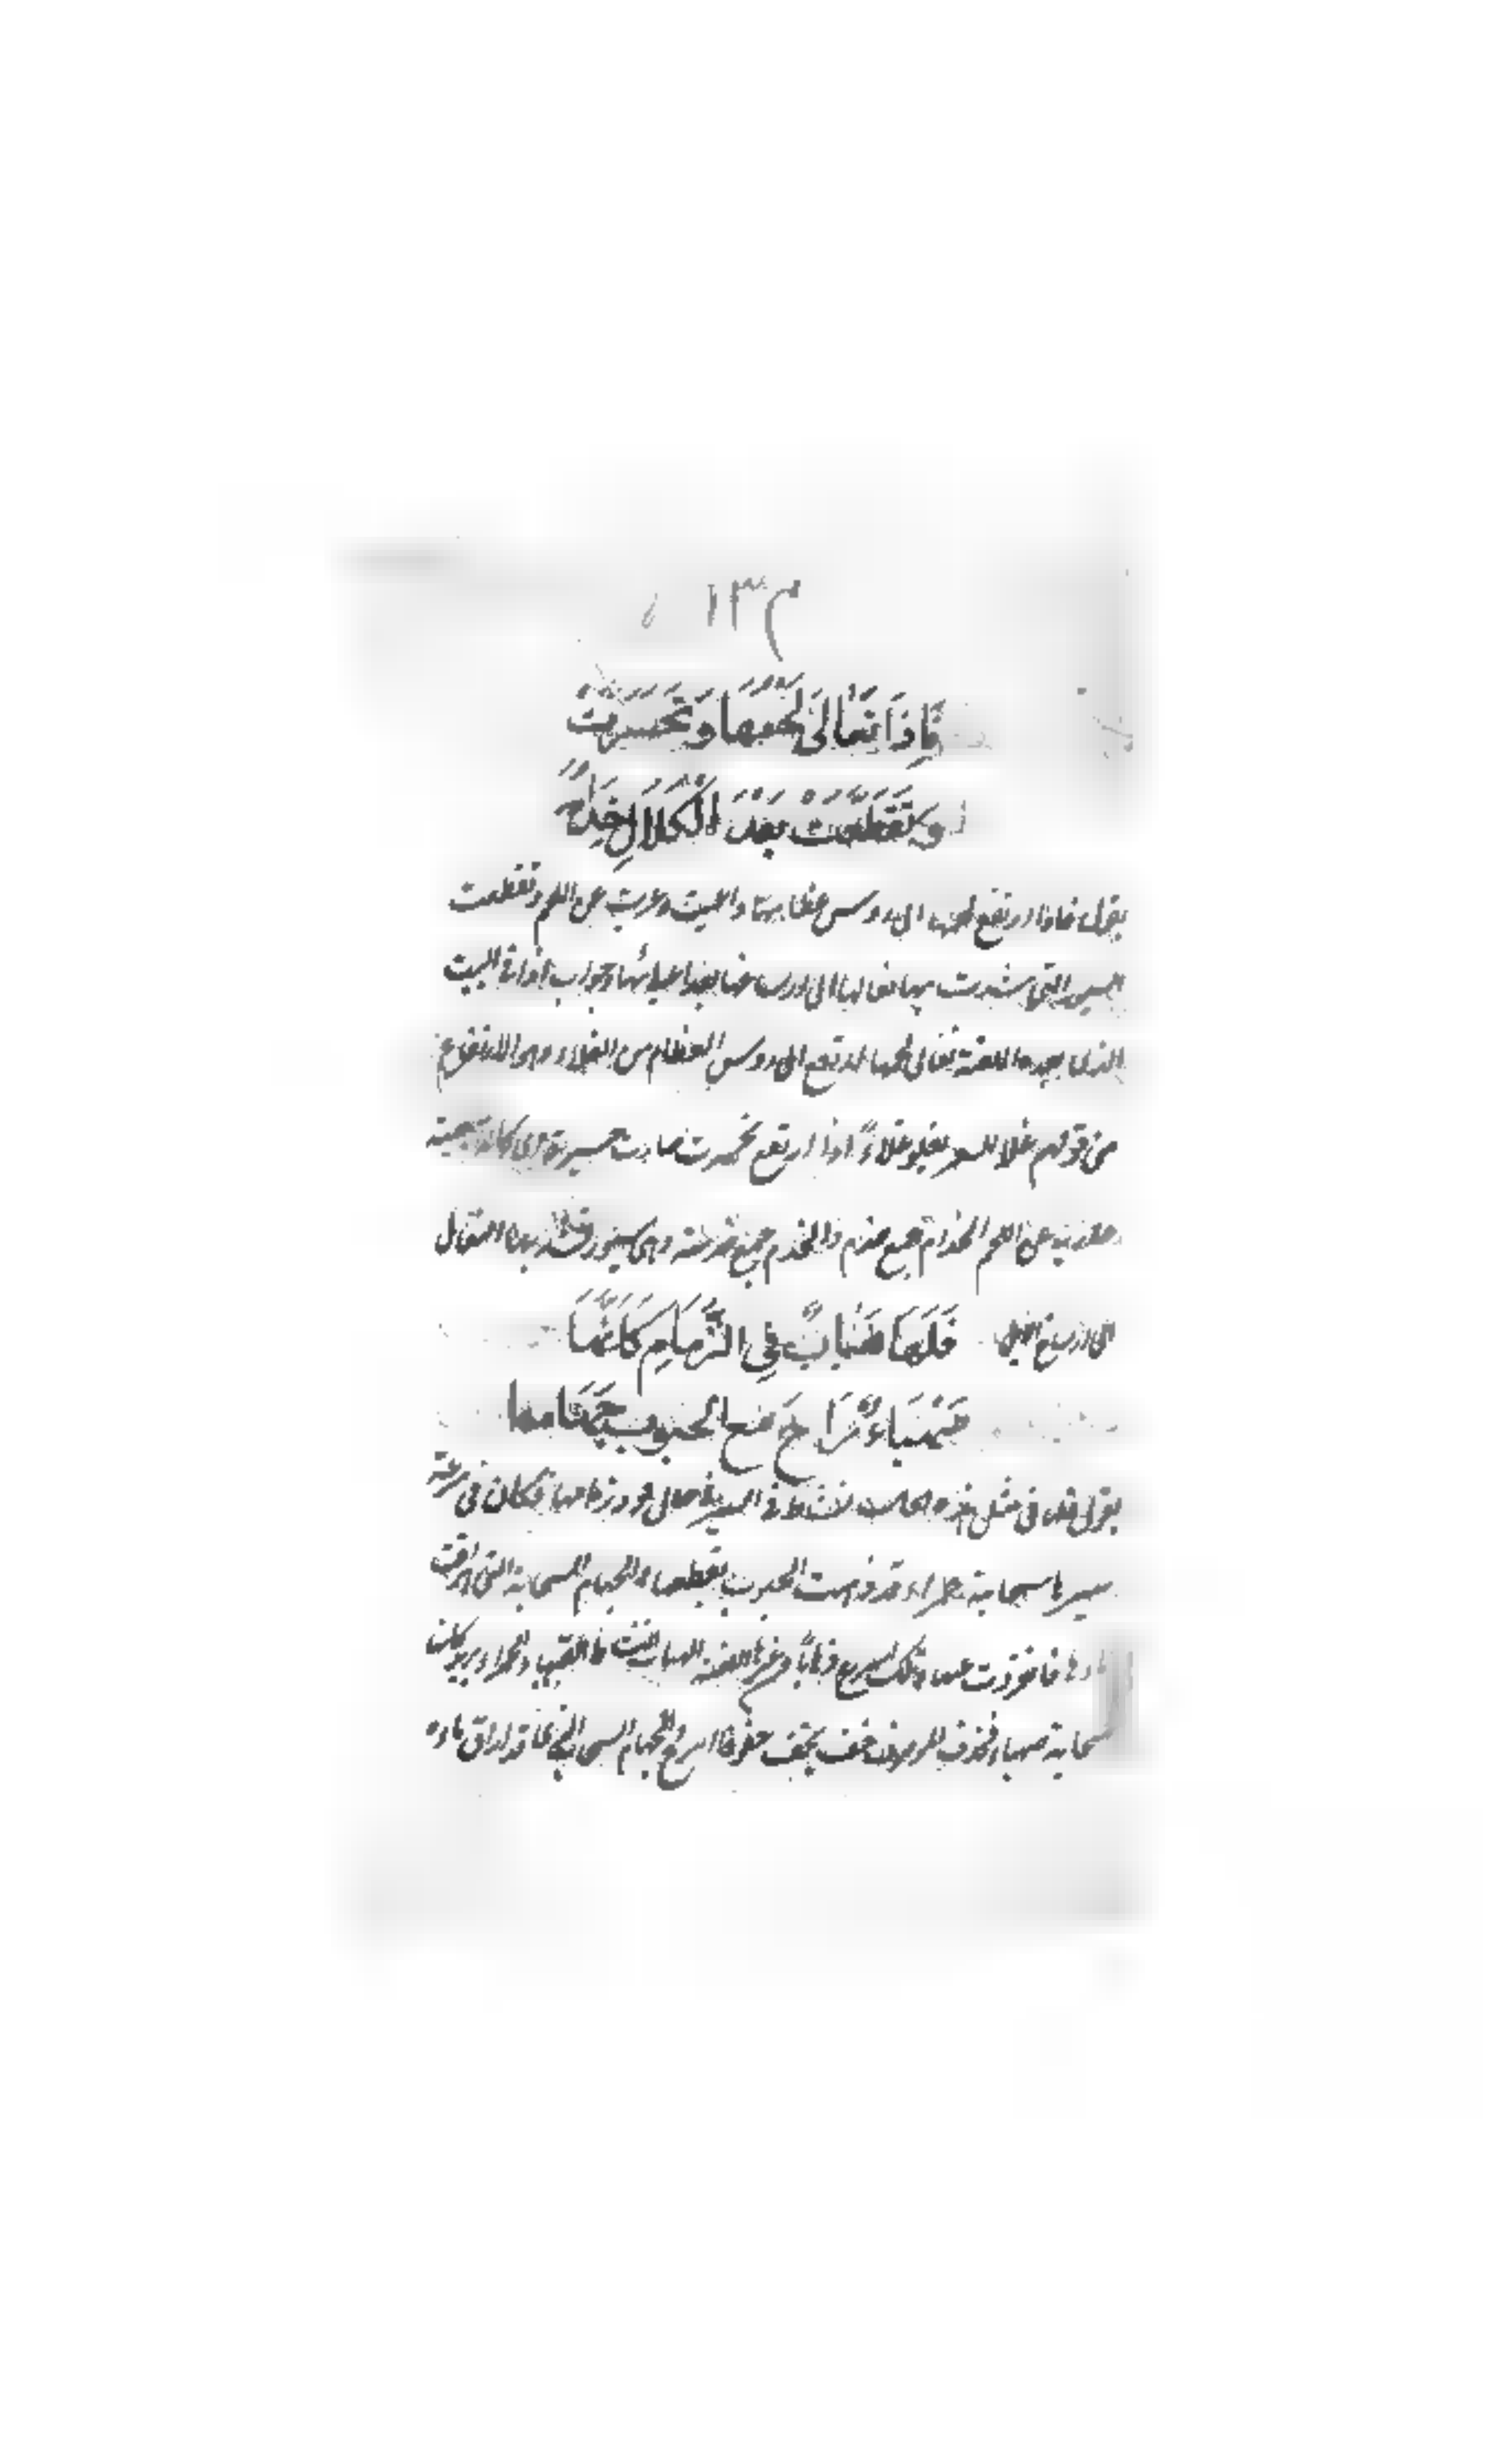 ١٣٤
فَإِذَا تَغَالَى لَحْمُهَا وَتَحَسَّرَتْ
وَتَقَطَّعَتْ بَعْدَ الْكَلَالِ خِدَامُ
يقول فاذا ارتفع لحمها الى روس عظامها واعيت وعريت عن اللحم وتقطعت
السيور التى شدت بها نعالها الى ارساغها بعد اعيائها وجواب اذا فى البيت
الذى بعده اللغة تغالى لحمها ارتفع الى روس العظام من الغلاء وهو الارتفاع
من قولهم غلا السعر يغلو غلاءً اذا ارتفع تحسرت صارت حسيرة اى كالة معيية
عارية عن اللحم الخدام جمع خدم والخدم جمع خدمة وهى سيور تشد بها النعال
الى ارساغ الابل فَلَهَا هَبَابٌ فِي الزِّمَامِ كَأَنَّهَا
صَهْبَاءُ رَاحَ مَعَ الجنوب جَهَامها
يقول فلها فى مثل هذه الحالة نشاط فى السير فى حال قود زمامها فكان فى سرعة
سيرها سحابة حمراء قد ذهبت الجنوب بقطعها والجهام السحابة التى اراقت
ماءها فانفردت عنها وتلك اسرع ذهاباً من غيرها اللغة الهباب النشاط الصهباء الحمراء يريد كانها
سحابة صهباء فحذف الموصوف خف يخف خفوفا اسرع والجهام السحاب الذى قد اراق ماءه